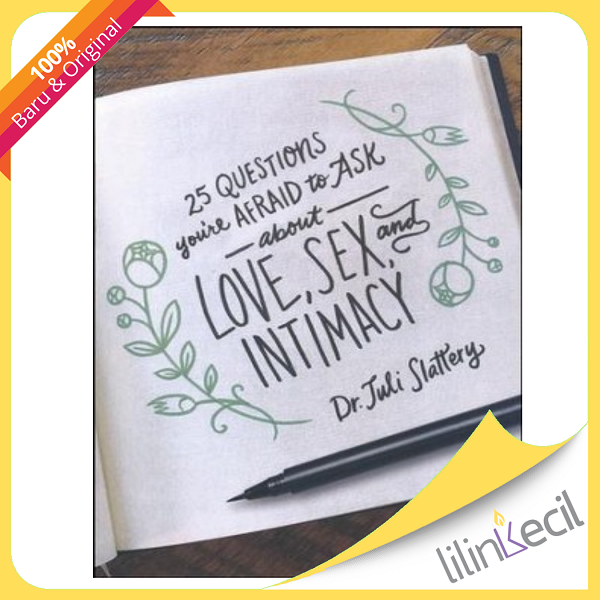 100%
Baru & Original
25 QUESTIONS
you're AFRAID to ASK
about
LOVE, SEX, and
INTIMACY
Dr. Juli Slattery
lilinkecil